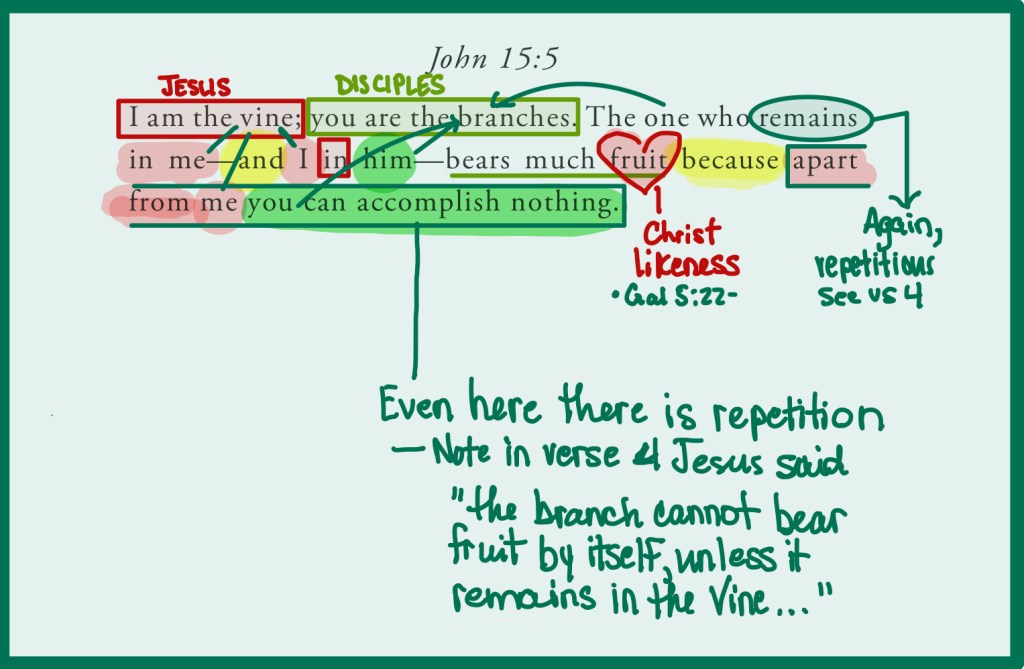 John 15:5
JESUS
DISCIPLES
I am the vine; you are the branches. The one who remains
in me—and I in him—bears much fruit because apart
from me you can accomplish nothing.
Christ
likeness
•Gal 5:22-
Again,
repetitious
See vs 4
Even here there is repetition
— Note in verse 4 Jesus said
"the branch cannot bear
fruit by itself, unless it
remains in the Vine..."